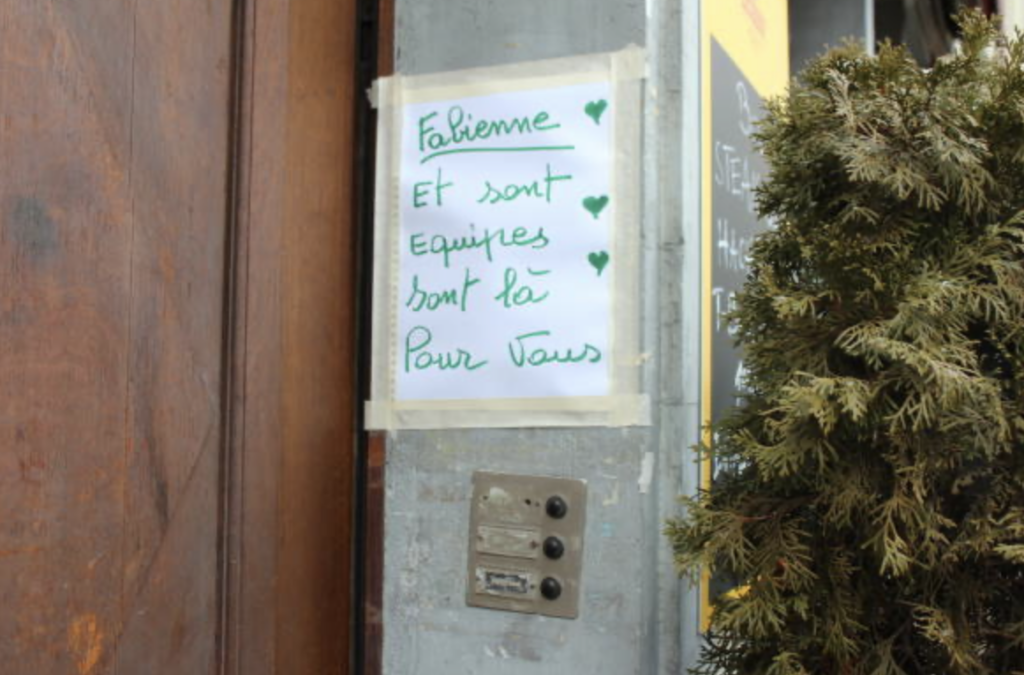 Fabienne
Et sont
Equipes
sont là
Pour Vous